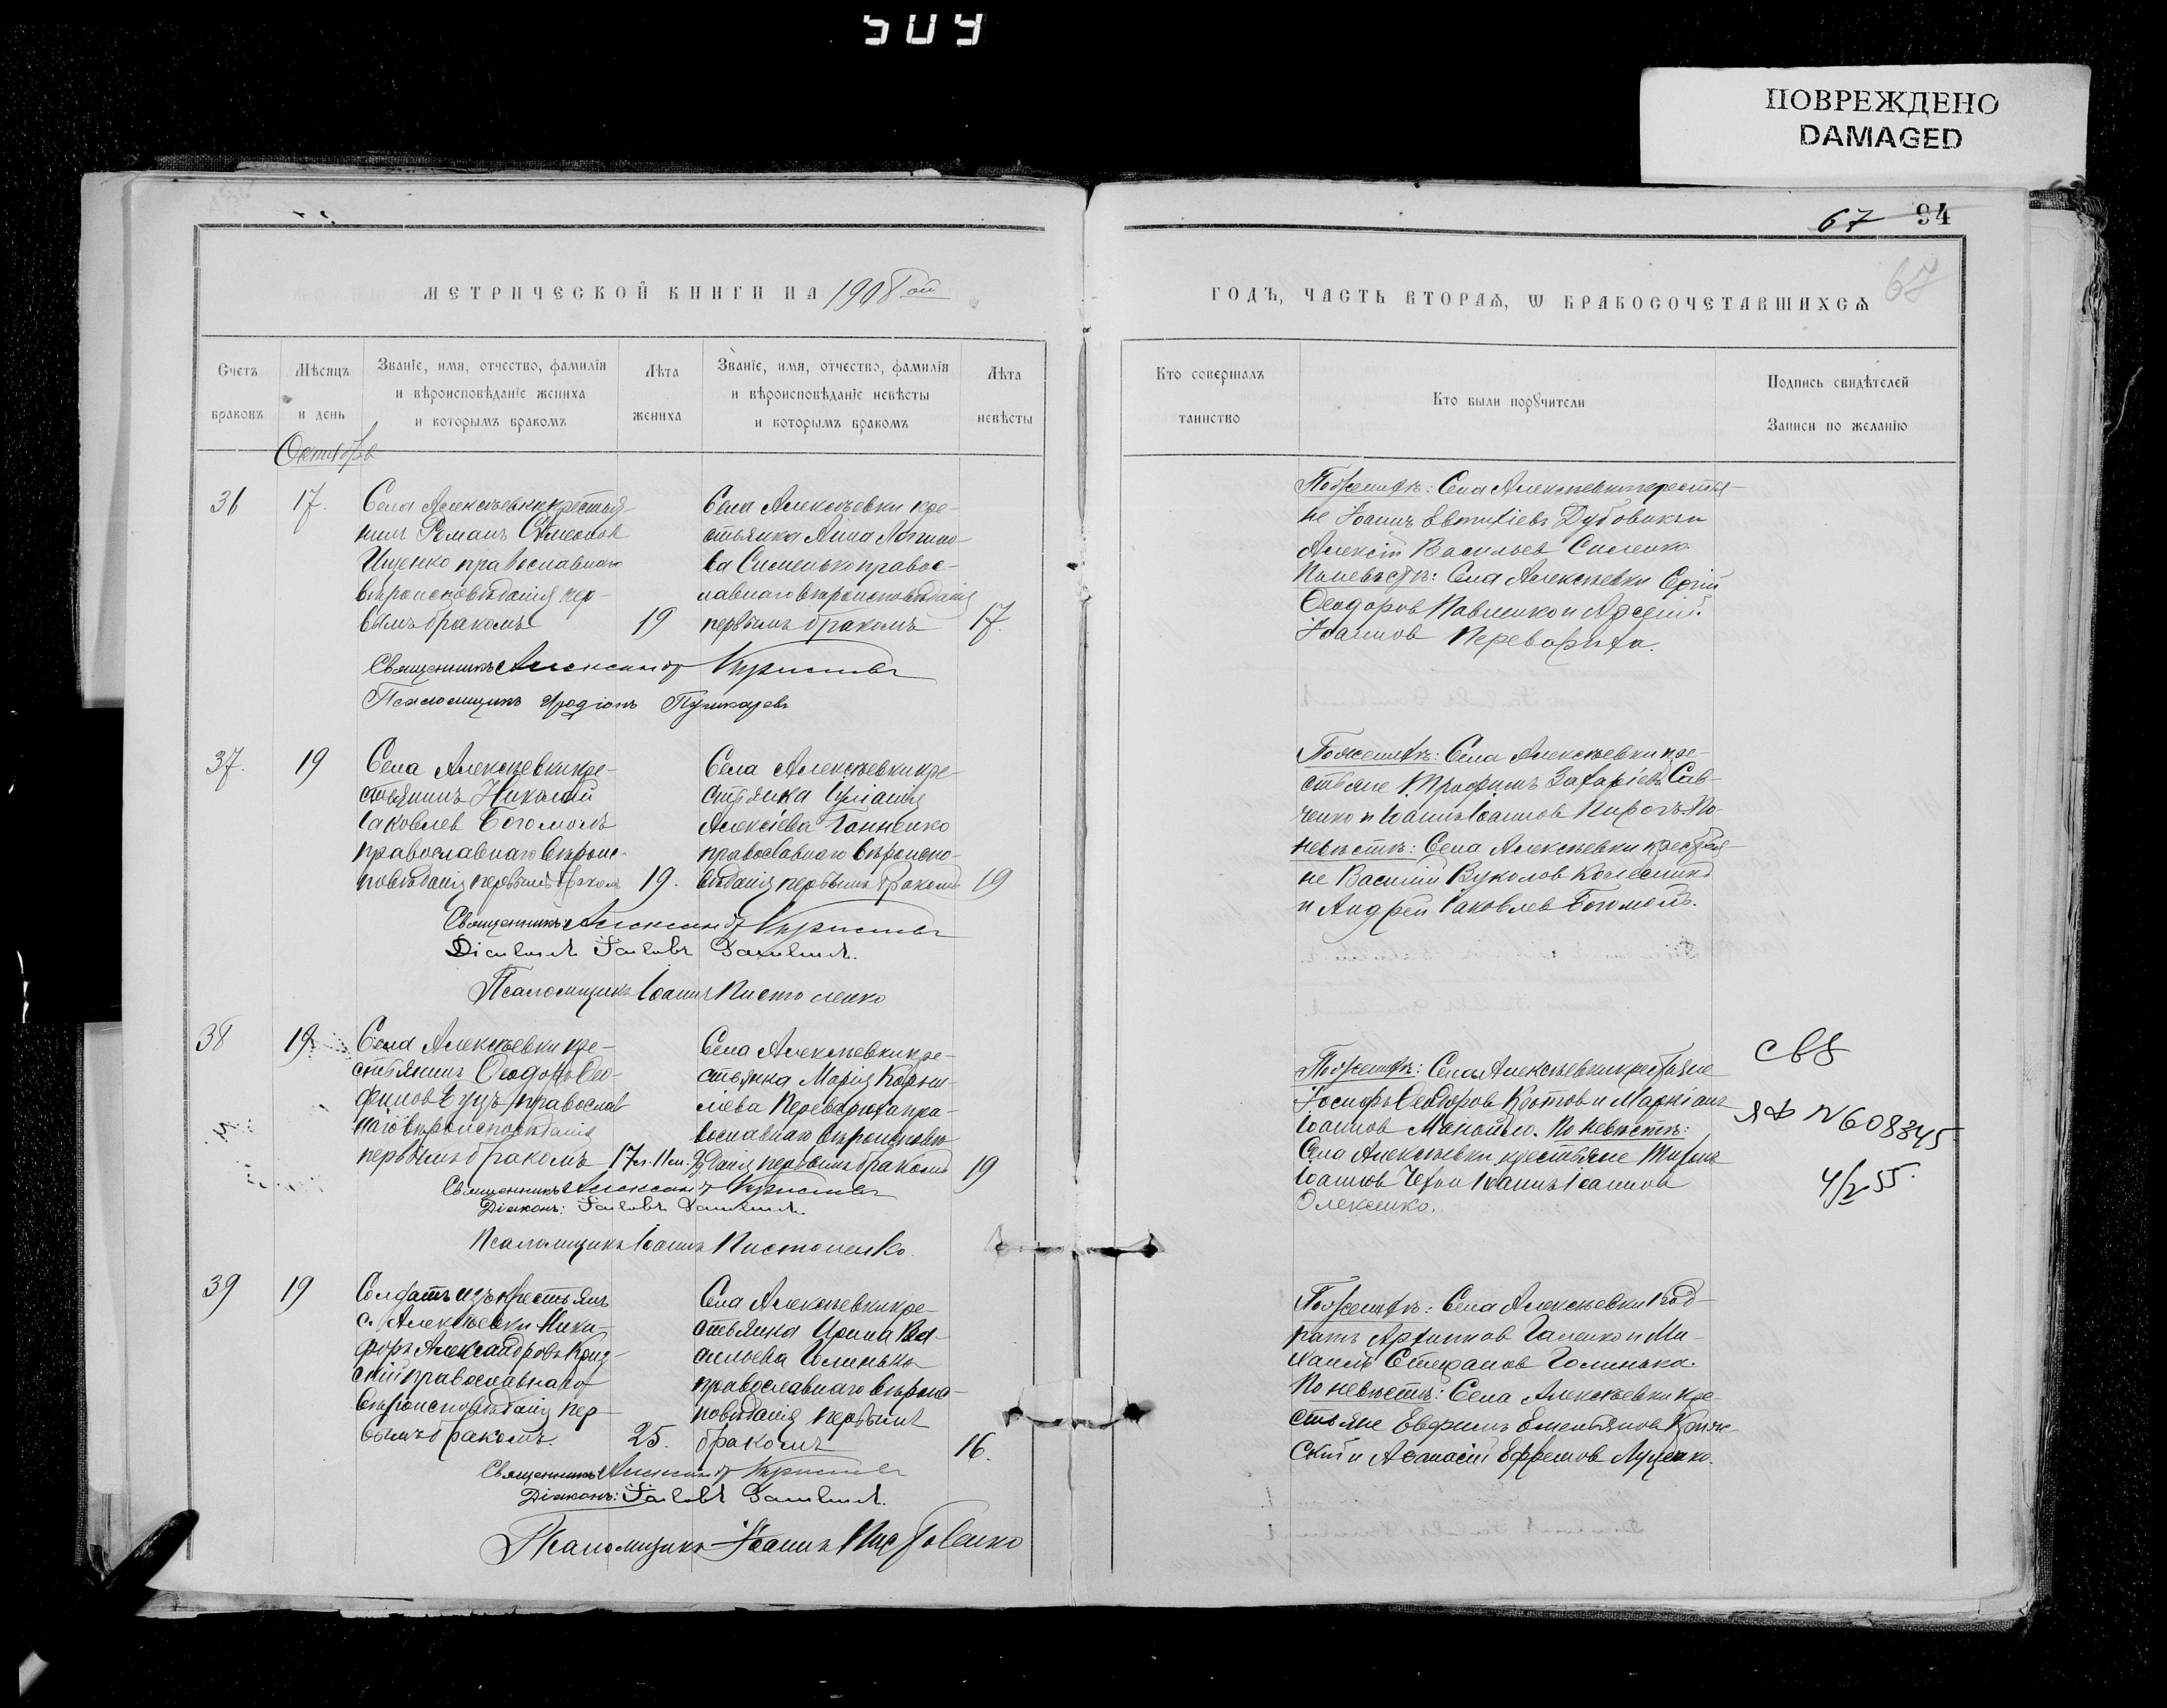 509
ПОВРЕЖДЕНО
DAMAGED
67 94
67
МЕТРИЧЕСКОЙ КНИГИ НА 1908 ой
ГОДЪ, ЧАСТЬ ВТОРАѦ, Ѡ БРАКОСОЧЕТАВШИХСѦ
Счетъ браковъ
Мѣсяцъ и день
Званіе, имя, отчество, фамилія и вѣроисповѣданіе жениха и которымъ бракомъ
Лѣта жениха
Званіе, имя, отчество, фамилія и вѣроисповѣданіе невѣсты и которымъ бракомъ
Лѣта невѣсты
Кто совершалъ таинство
Кто были поручители
Подпись свидѣтелей Записи по желанію
Октябрь
36
17.
Села Алексѣевки крестья-
нинъ Романъ Симеонов
Ищенко православнаго
вѣроисповѣданія пер-
вымъ бракомъ
19
Села Алексѣевки кре-
стьянка Анна Логино-
ва Сисменько правос-
лавнаго вѣроисповѣданія
первымъ бракомъ
17.
Священникъ Александр
Псаломщикъ Иродіонъ Пушкаревъ
По женихѣ: Села Алексѣевки крестья-
не Іоаннъ Евтихіевъ Дубовикъ и
Алексій Васильев Силенко.
По невѣстѣ: Села Алексѣевки Сергій
Ѳеодоров Павленко и Арсеній
Іоаннов Перевариха.
37.
19
Села Алексѣевки кре-
стьянинъ Николай
Іаковлев Богомолъ
православнаго вѣроис-
повѣданія первымъ бракомъ
19.
Села Алексѣевки кре-
стьянка Іуліанія
Алексіева Ганненко
православнаго вѣроиспо-
вѣданія первымъ бракомъ
19
Священникъ Александр
Псаломщикъ Іоаннъ Пистоленко
По женихѣ: Села Алексѣевки кре-
стьяне Трофимъ Захаріевъ Сав-
ченко и Іоаннъ Іоаннов Пирогъ. По
невѣстѣ: Села Алексѣевки крестья-
не Василій Вуколов Колесникъ
и Андрей Іаковлев Богомолъ.
38
19
Села Алексѣевки кре-
стьянинъ Ѳеодоръ Ѳео-
филов православ
наго вѣроисповѣданія
первымъ бракомъ
17 л. 11 м.
Села Алексѣевки кре-
стьянка Марія Корни-
ліева Переварюха пра-
вославнаго вѣроисповѣ-
данія первымъ бракомъ
19
Священникъ Александр
Діаконъ:
Псаломщикъ Іоаннъ Пистоленко.
По женихѣ: Села Алексѣевки крестьяне
Іосифъ Ѳеодоров Кротов и Маркіанъ
Іоаннов Манойло. По невѣстѣ:
Села Алексѣевки крестьяне Тихонъ
Іоаннов Чехов и Іоаннъ Іоаннов
Олексенко.
СВ8
ЯФ N608345
4/2 55.
39
19
Солдатъ изъ крестьянъ
с. Алексѣевки Ники-
форъ Александровъ
православнаго
вѣроисповѣданія пер-
вымъ бракомъ.
25.
Села Алексѣевки кре-
стьянка Ирина Ва-
сильева Голинько
православнаго вѣроис-
повѣданія первымъ
бракомъ
16.
Священникъ Александр
Діаконъ:
Псаломщикъ Іоаннъ Пистоленко
По женихѣ: Села Алексѣевки Код-
ратъ Архипов Галенко и Ми-
хаилъ Стефанов Голинько.
По невѣстѣ: Села Алексѣевки кре-
стьяне Евфимъ Емельянов
и Аѳанасій Ефремов Луценко.